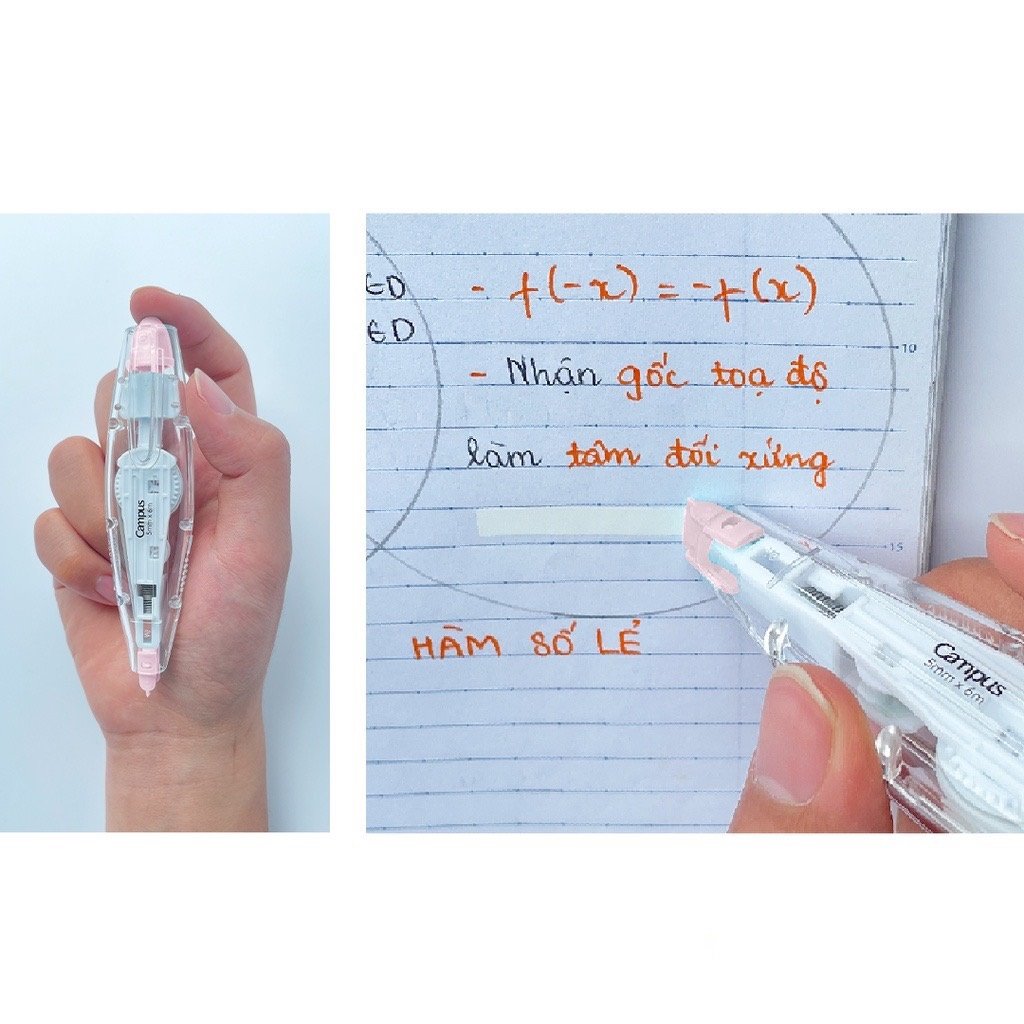 Campus
5mm x 6m
ED
- f(-x) = -f(x)
ED
10
- Nhận gốc toạ độ
làm tâm đối xứng
15
HÀM SỐ LẺ
Campus
5mm x 6m